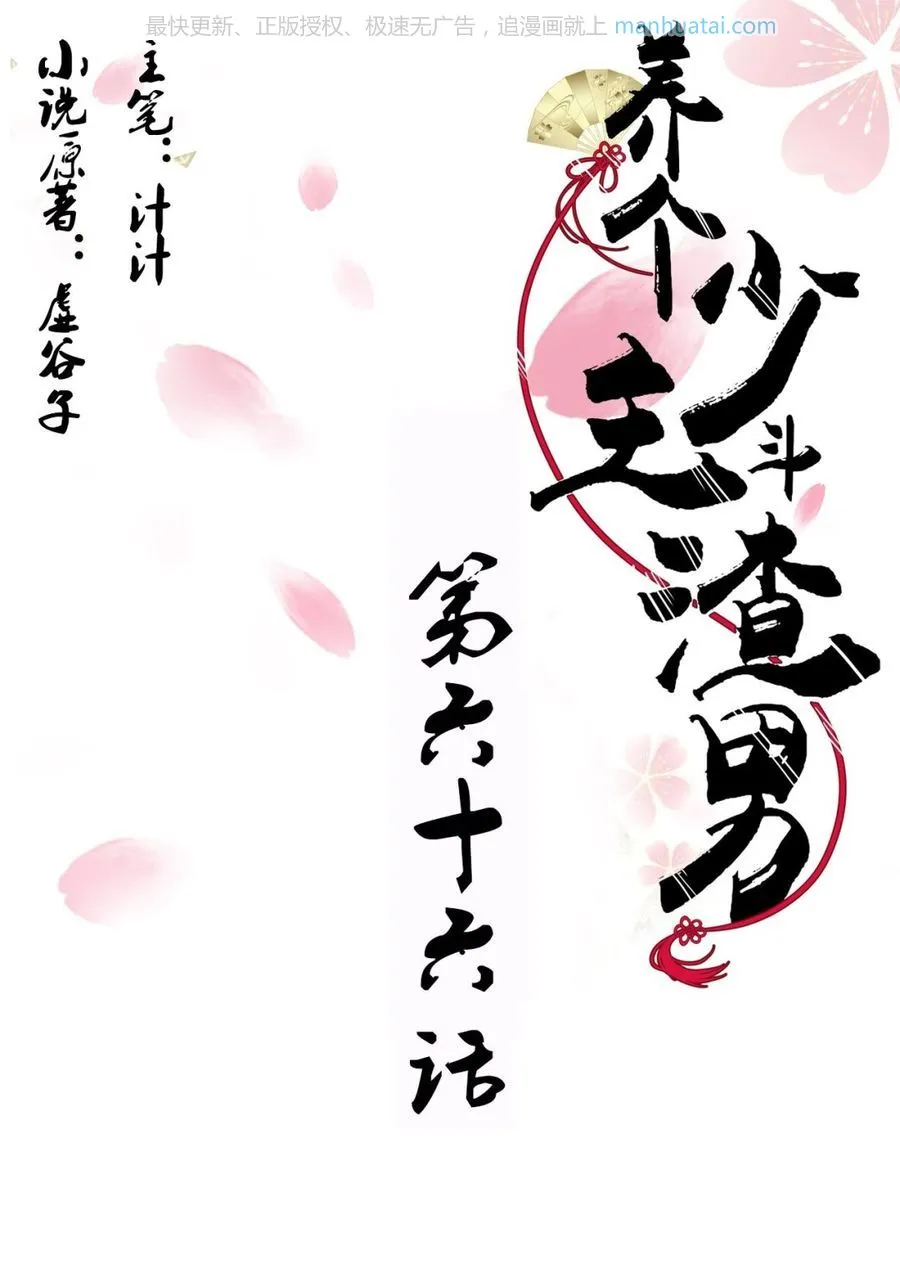 最快更新、正版授权、极速无广告，追漫画就上 manhuatai.com
养个少主斗渣男
第六十六话
主笔：汁汁
小说原著：虚谷子